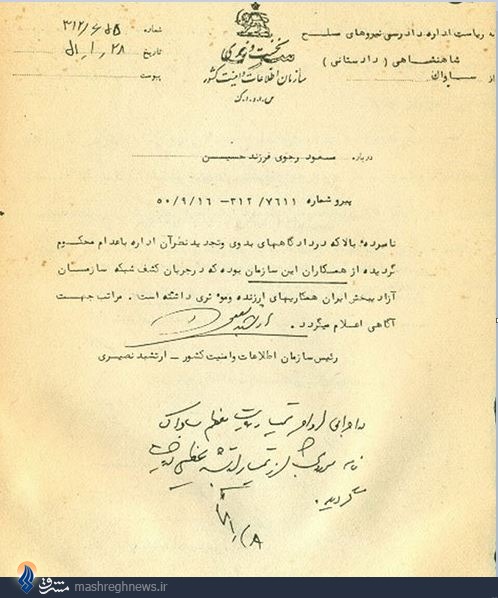 به ریاست اداره دادرسی نیروهای مسلح
شاهنشاهی ( دادستانی )
از ساواک
نخست وزیری
سازمان اطلاعات و امنیت کشور
س.ا.و.ا.ک
شماره
تاریخ ۵۱،۱،۲۸
پیوست
درباره مسعود رجوی فرزند حسین
پیرو شماره ۳۱۲/۷۶۱۱ - ۵۰/۹/۱۶
نامبرده بالا که در دادگاههای بدوی و تجدید نظر آن اداره باعدام محکوم
گردیده از همکاران این سازمان بوده که در جریان کشف شبکه سازمان
آزاد یبخش ایران همکاریهای ارزنده وموثری داشته است . مراتب جهت
آگاهی اعلام میگردد .
رئیس سازمان اطلاعات وامنیت کشور - ارتشبد نصیری
ساواک
گردید .
مشرق mashreghnews.ir